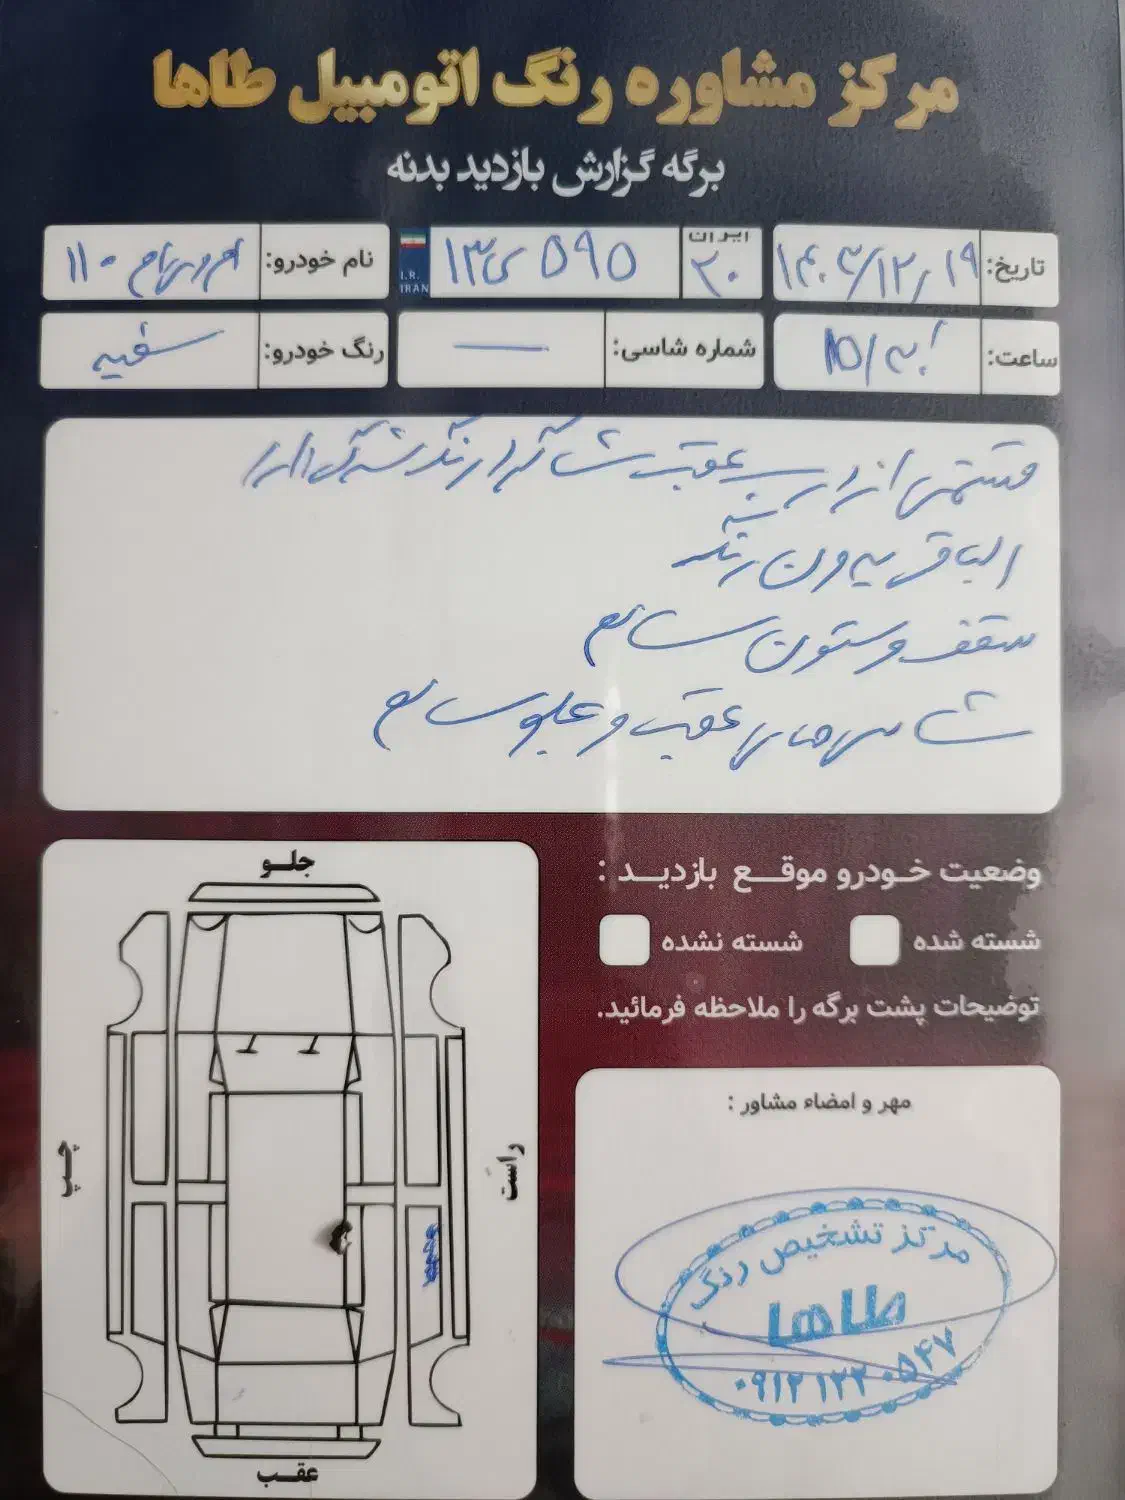 مرکز مشاوره رنگ اتومبیل طاها
برگه گزارش بازدید بدنه
تاریخ: ۱۴۰۳/۱۲/۱۹
ایران ۲۰ ۵۹۵ ی ۱۳
I.R. IRAN
نام خودرو: ۱۱۰
ساعت: ۱۵/
شماره شاسی: —
رنگ خودرو: سفید
قسمتی از درب عقب شاگرد رنگ شدگی دارد
الباقی بدون رنگ
سقف و ستون سالم
شاسی های عقب و جلو سالم
وضعیت خودرو موقع بازدید :
شسته شده
شسته نشده
توضیحات پشت برگه را ملاحظه فرمائید.
جلو
چپ
راست
عقب
مهر و امضاء مشاور :
مرکز تشخیص رنگ
طاها
۰۹۱۲ ۱۲۲ ۰۵۴۷